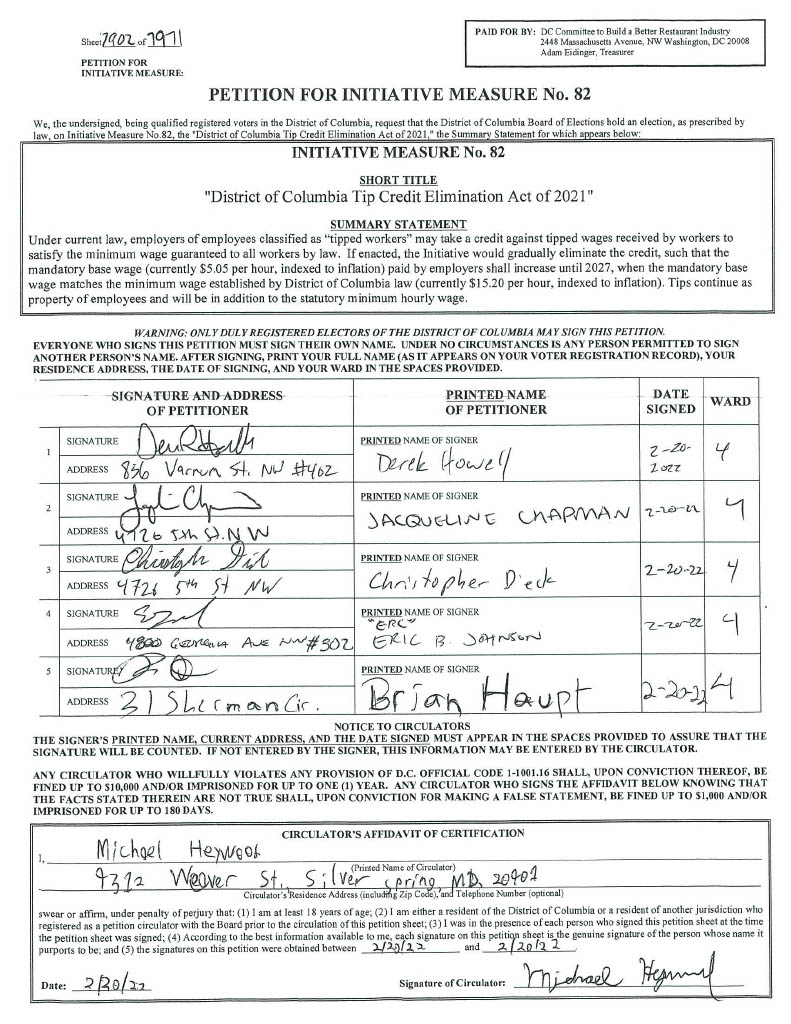 Sheet 7902 of 7971
PETITION FOR
INITIATIVE MEASURE:
PAID FOR BY: DC Committee to Build a Better Restaurant Industry
2448 Massachusetts Avenue, NW Washington, DC 20008
Adam Eidinger, Treasurer
PETITION FOR INITIATIVE MEASURE No. 82
We, the undersigned, being qualified registered voters in the District of Columbia, request that the District of Columbia Board of Elections hold an election, as prescribed by
law, on Initiative Measure No.82, the "District of Columbia Tip Credit Elimination Act of 2021," the Summary Statement for which appears below:
INITIATIVE MEASURE No. 82
SHORT TITLE
"District of Columbia Tip Credit Elimination Act of 2021"
SUMMARY STATEMENT
Under current law, employers of employees classified as "tipped workers" may take a credit against tipped wages received by workers to
satisfy the minimum wage guaranteed to all workers by law. If enacted, the Initiative would gradually eliminate the credit, such that the
mandatory base wage (currently $5.05 per hour, indexed to inflation) paid by employers shall increase until 2027, when the mandatory base
wage matches the minimum wage established by District of Columbia law (currently $15.20 per hour, indexed to inflation). Tips continue as
property of employees and will be in addition to the statutory minimum hourly wage.
WARNING: ONLY DULY REGISTERED ELECTORS OF THE DISTRICT OF COLUMBIA MAY SIGN THIS PETITION.
EVERYONE WHO SIGNS THIS PETITION MUST SIGN THEIR OWN NAME. UNDER NO CIRCUMSTANCES IS ANY PERSON PERMITTED TO SIGN
ANOTHER PERSON'S NAME. AFTER SIGNING, PRINT YOUR FULL NAME (AS IT APPEARS ON YOUR VOTER REGISTRATION RECORD), YOUR
RESIDENCE ADDRESS, THE DATE OF SIGNING, AND YOUR WARD IN THE SPACES PROVIDED.
SIGNATURE AND ADDRESS
OF PETITIONER
PRINTED NAME
OF PETITIONER
DATE
SIGNED
WARD
1
SIGNATURE
ADDRESS 836 Varnum St. NW #402
PRINTED NAME OF SIGNER
Derek Howell
2-20-
2022
4
2
SIGNATURE
ADDRESS 4726 5th St. NW
PRINTED NAME OF SIGNER
JACQUELINE CHAPMAN
2-20-22
4
3
SIGNATURE
ADDRESS 4726 5th St NW
PRINTED NAME OF SIGNER
Christopher Dieck
2-20-22
4
4
SIGNATURE
ADDRESS 4800 GEORGIA AVE NW #302
PRINTED NAME OF SIGNER
"ERC"
ERIC B. JOHNSON
2-20-22
4
5
SIGNATURE
ADDRESS 31 Sherman Cir.
PRINTED NAME OF SIGNER
Brian Haupt
2-20-22
4
NOTICE TO CIRCULATORS
THE SIGNER'S PRINTED NAME, CURRENT ADDRESS, AND THE DATE SIGNED MUST APPEAR IN THE SPACES PROVIDED TO ASSURE THAT THE
SIGNATURE WILL BE COUNTED. IF NOT ENTERED BY THE SIGNER, THIS INFORMATION MAY BE ENTERED BY THE CIRCULATOR.
ANY CIRCULATOR WHO WILLFULLY VIOLATES ANY PROVISION OF D.C. OFFICIAL CODE 1-1001.16 SHALL, UPON CONVICTION THEREOF, BE
FINED UP TO $10,000 AND/OR IMPRISONED FOR UP TO ONE (1) YEAR. ANY CIRCULATOR WHO SIGNS THE AFFIDAVIT BELOW KNOWING THAT
THE FACTS STATED THEREIN ARE NOT TRUE SHALL, UPON CONVICTION FOR MAKING A FALSE STATEMENT, BE FINED UP TO $1,000 AND/OR
IMPRISONED FOR UP TO 180 DAYS.
CIRCULATOR'S AFFIDAVIT OF CERTIFICATION
I, Michael Heywood
(Printed Name of Circulator)
9312 Weaver St, Silver Spring MD, 20901
Circulator's Residence Address (including Zip Code), and Telephone Number (optional)
swear or affirm, under penalty of perjury that: (1) I am at least 18 years of age; (2) I am either a resident of the District of Columbia or a resident of another jurisdiction who
registered as a petition circulator with the Board prior to the circulation of this petition sheet; (3) I was in the presence of each person who signed this petition sheet at the time
the petition sheet was signed; (4) According to the best information available to me, each signature on this petition sheet is the genuine signature of the person whose name it
purports to be; and (5) the signatures on this petition were obtained between 2/20/22 and 2/20/22
Date: 2/20/22
Signature of Circulator: Michael Heywood